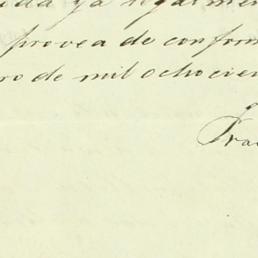 ida ya legalmen
provea de conform
ro de mil ochocien
Fra